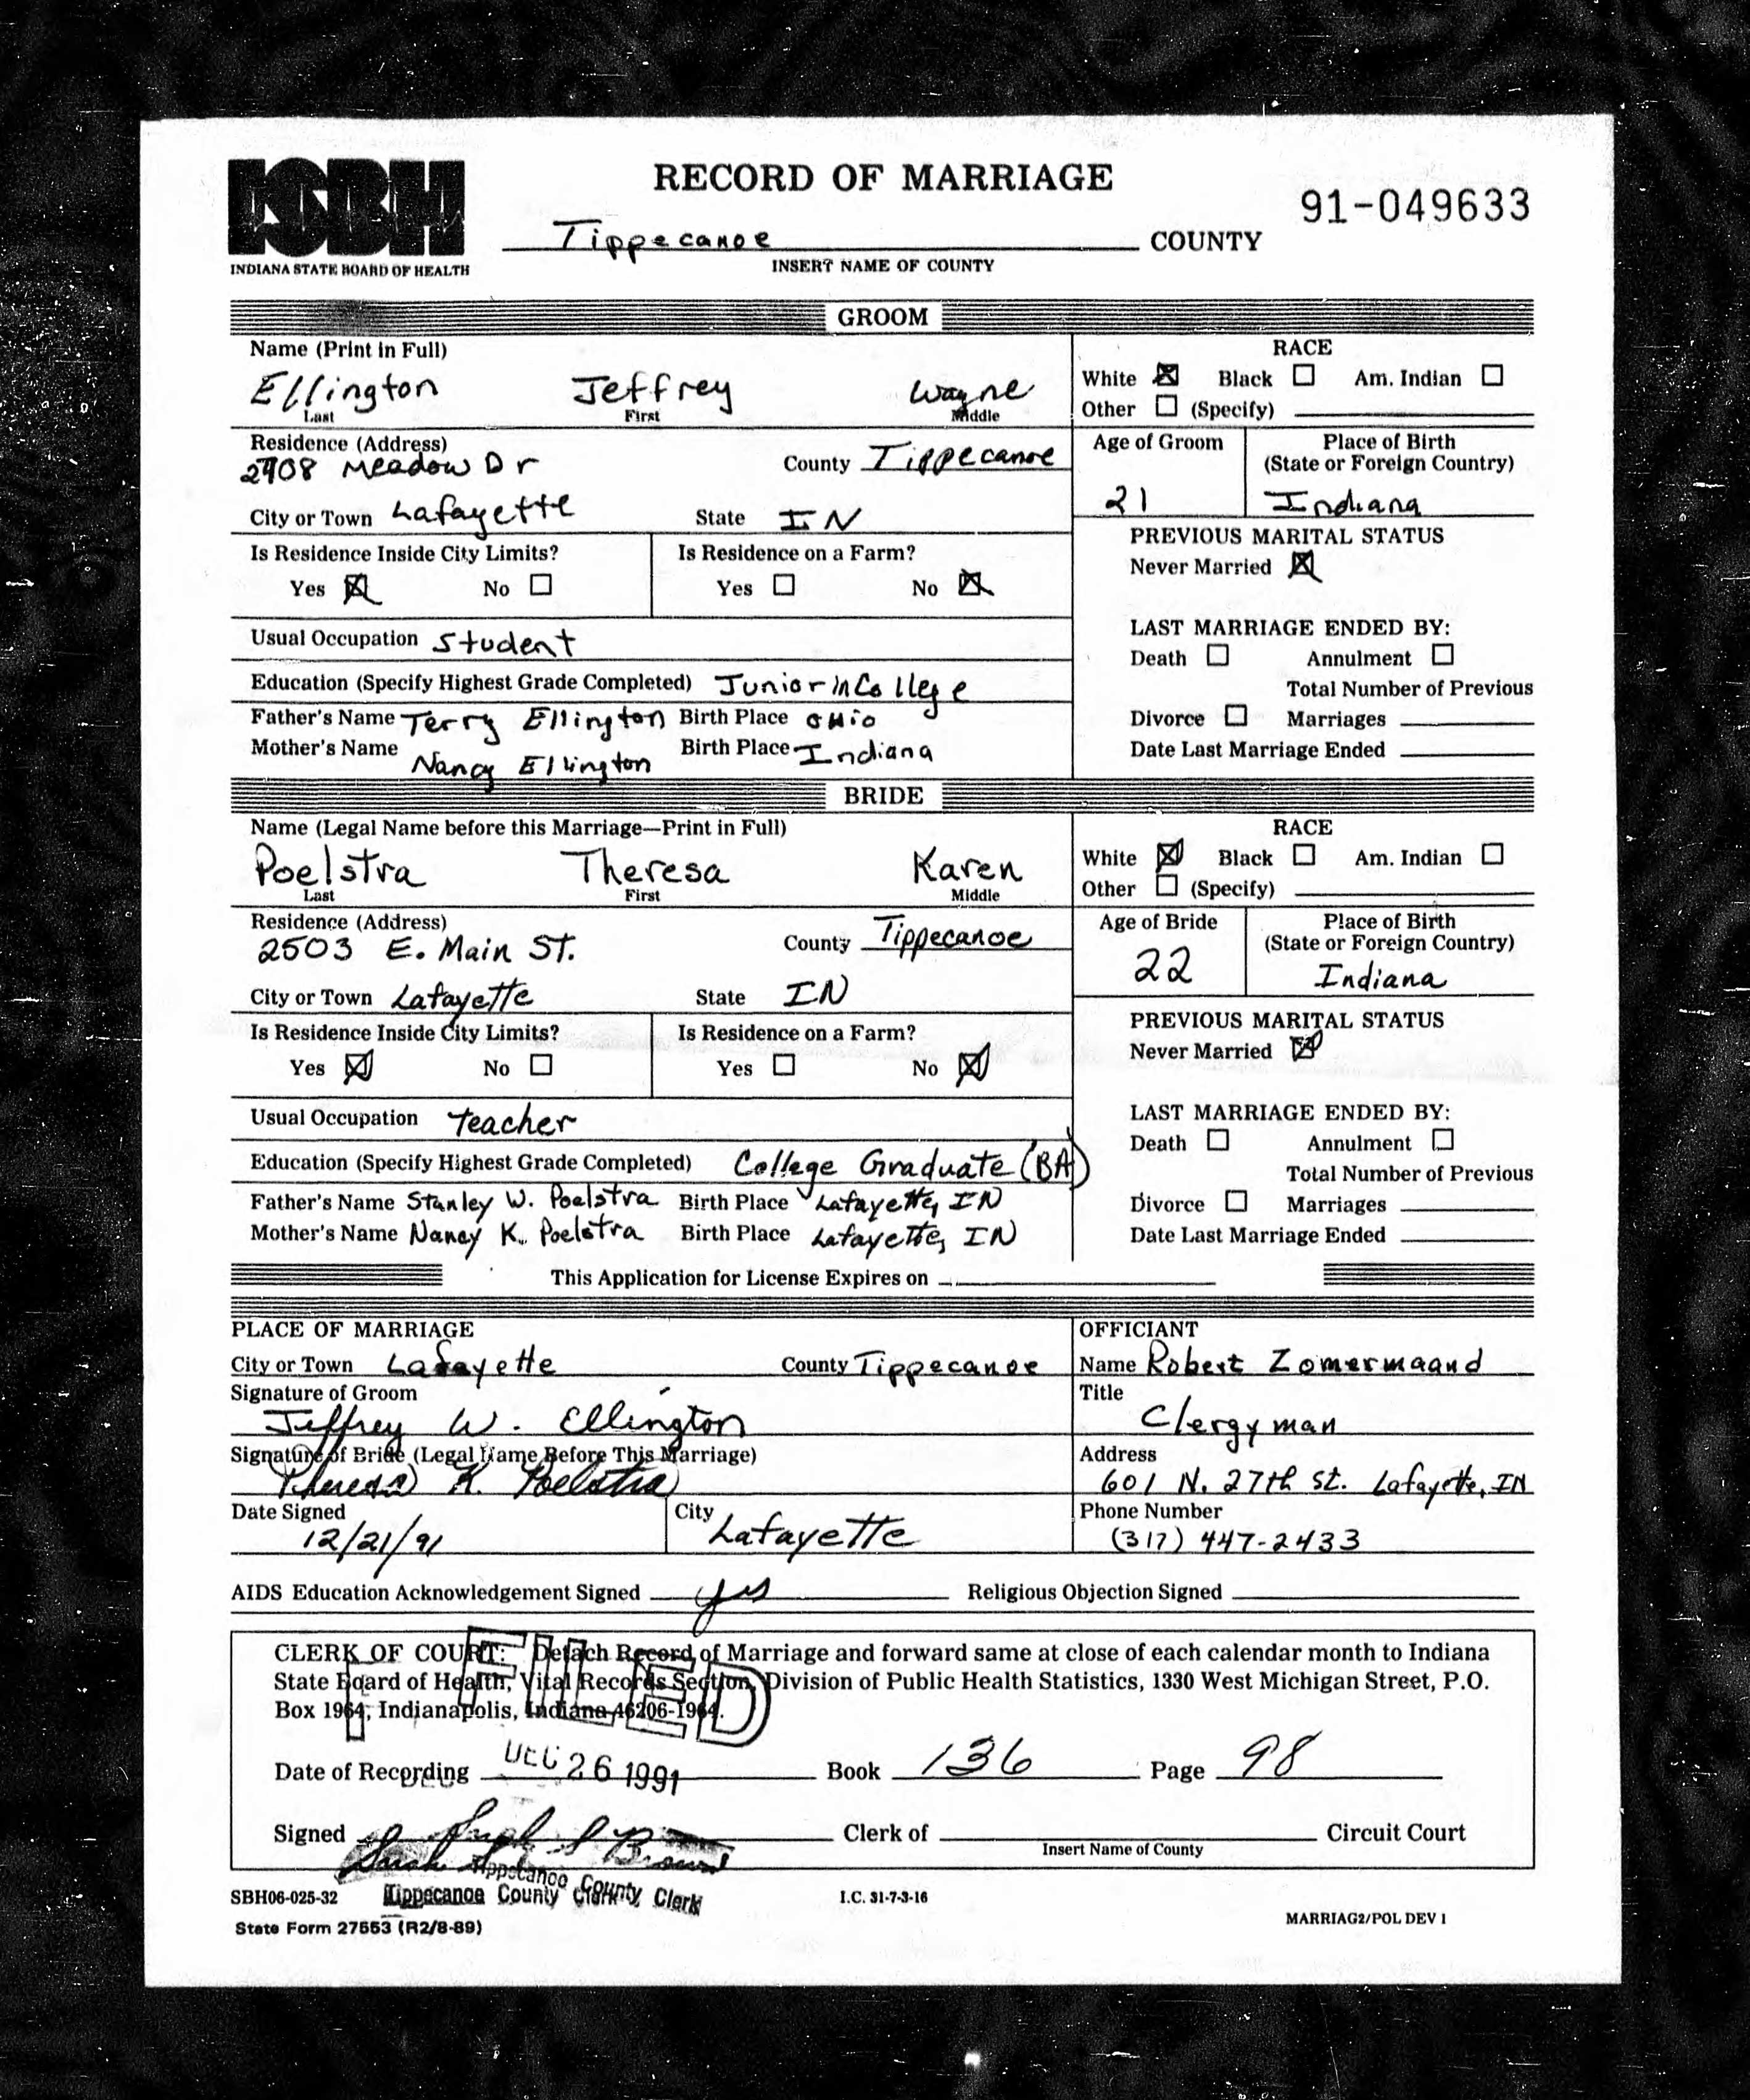 ISBH
RECORD OF MARRIAGE
91-049633
Tippecanoe COUNTY
INDIANA STATE BOARD OF HEALTH
INSERT NAME OF COUNTY
GROOM
Name (Print in Full)
Ellington Jeffrey Wayne
Last First Middle
RACE
White ☒ Black ☐ Am. Indian ☐
Other ☐ (Specify)
Residence (Address)
Meadow Dr
County Tippecanoe
City or Town Lafayette State IN
Age of Groom
21
Place of Birth
(State or Foreign Country)
Indiana
Is Residence Inside City Limits?
Yes ☒ No ☐
Is Residence on a Farm?
Yes ☐ No ☒
PREVIOUS MARITAL STATUS
Never Married ☒
Usual Occupation Student
LAST MARRIAGE ENDED BY:
Death ☐ Annulment ☐
Education (Specify Highest Grade Completed) Junior in College
Total Number of Previous
Father's Name Terry Ellington Birth Place OHio
Divorce ☐ Marriages
Mother's Name Nancy Ellington Birth Place Indiana
Date Last Marriage Ended
BRIDE
Name (Legal Name before this Marriage—Print in Full)
Poelstra Theresa Karen
Last First Middle
RACE
White ☒ Black ☐ Am. Indian ☐
Other ☐ (Specify)
Residence (Address)
2503 E. Main St.
County Tippecanoe
City or Town Lafayette State IN
Age of Bride
22
Place of Birth
(State or Foreign Country)
Indiana
Is Residence Inside City Limits?
Yes ☒ No ☐
Is Residence on a Farm?
Yes ☐ No ☒
PREVIOUS MARITAL STATUS
Never Married ☒
Usual Occupation teacher
LAST MARRIAGE ENDED BY:
Death ☐ Annulment ☐
Education (Specify Highest Grade Completed) College Graduate (BA)
Total Number of Previous
Father's Name Stanley W. Poelstra Birth Place Lafayette, IN
Divorce ☐ Marriages
Mother's Name Nancy K. Poelstra Birth Place Lafayette, IN
Date Last Marriage Ended
This Application for License Expires on
PLACE OF MARRIAGE
City or Town Lafayette County Tippecanoe
OFFICIANT
Name Robert Zomermaand
Signature of Groom
Jeffrey W. Ellington
Title
Clergyman
Signature of Bride (Legal Name Before This Marriage)
Theresa K. Poelstra
Address
601 N. 27th St. Lafayette, IN
Date Signed
12/21/91
City
Lafayette
Phone Number
(317) 447-2433
AIDS Education Acknowledgement Signed yes Religious Objection Signed
CLERK OF COURT: Detach Record of Marriage and forward same at close of each calendar month to Indiana
State Board of Health, Vital Records Section, Division of Public Health Statistics, 1330 West Michigan Street, P.O.
Box 1964, Indianapolis, Indiana 46206-1964.
FILED
Date of Recording DEC 26 1991 Book 136 Page 98
Signed Sarah S Brown Clerk of Circuit Court
Insert Name of County
Tippecanoe County Clerk
Tippecanoe County Clerk
SBH06-025-32
I.C. 31-7-3-16
State Form 27553 (R2/8-89)
MARRIAG2/POL DEV 1